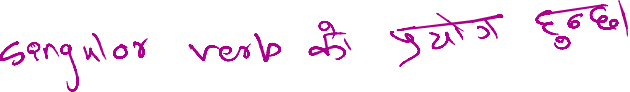 singular verb को प्रयोग हुन्छ।